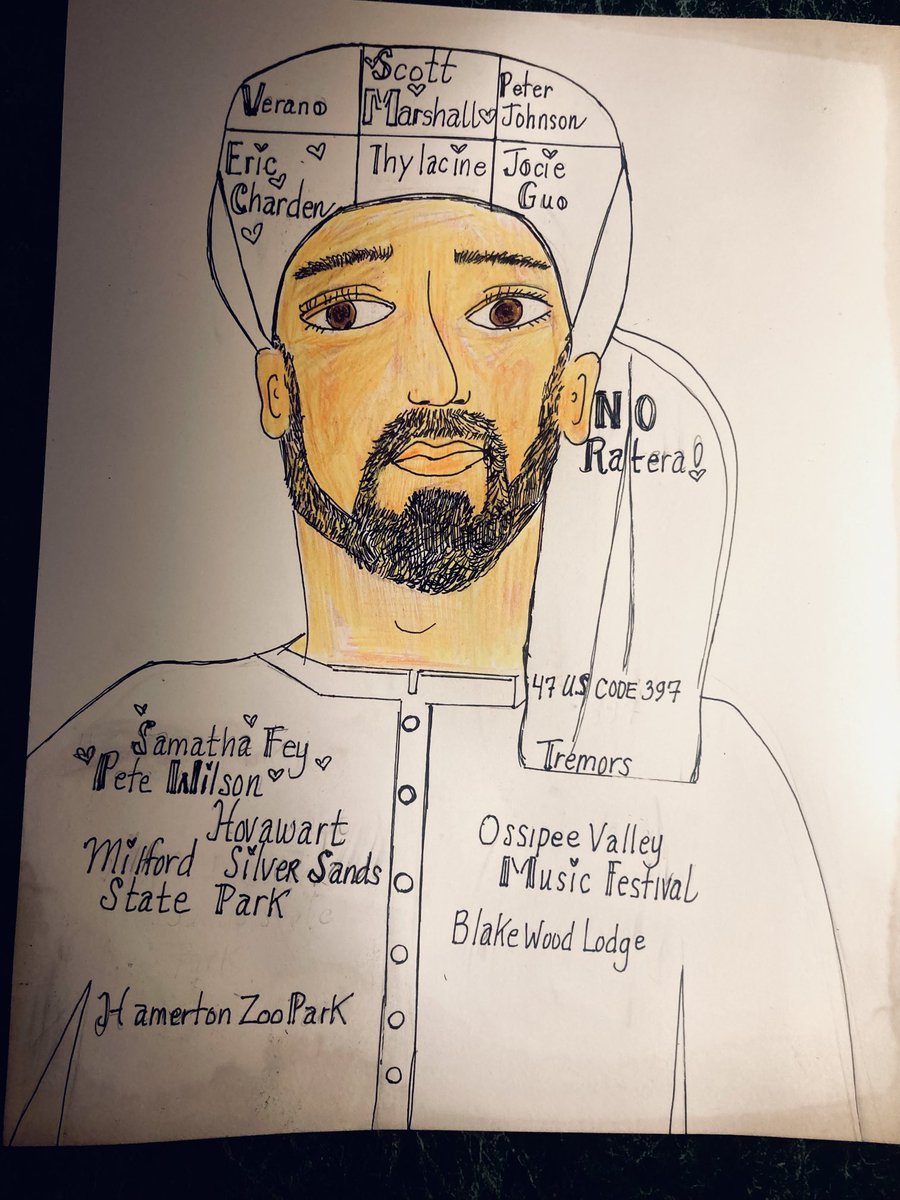 Verano
Scott
Marshall
Peter
Johnson
Eric
Charden
Thylacine
Jocie
Guo
NO
Ratera!
47 US CODE 397
Tremors
Samatha Fey
Pete Wilson
Hovawart
Milford Silver Sands
State Park
Hamerton Zoo Park
Ossipee Valley
Music Festival
Blakewood Lodge